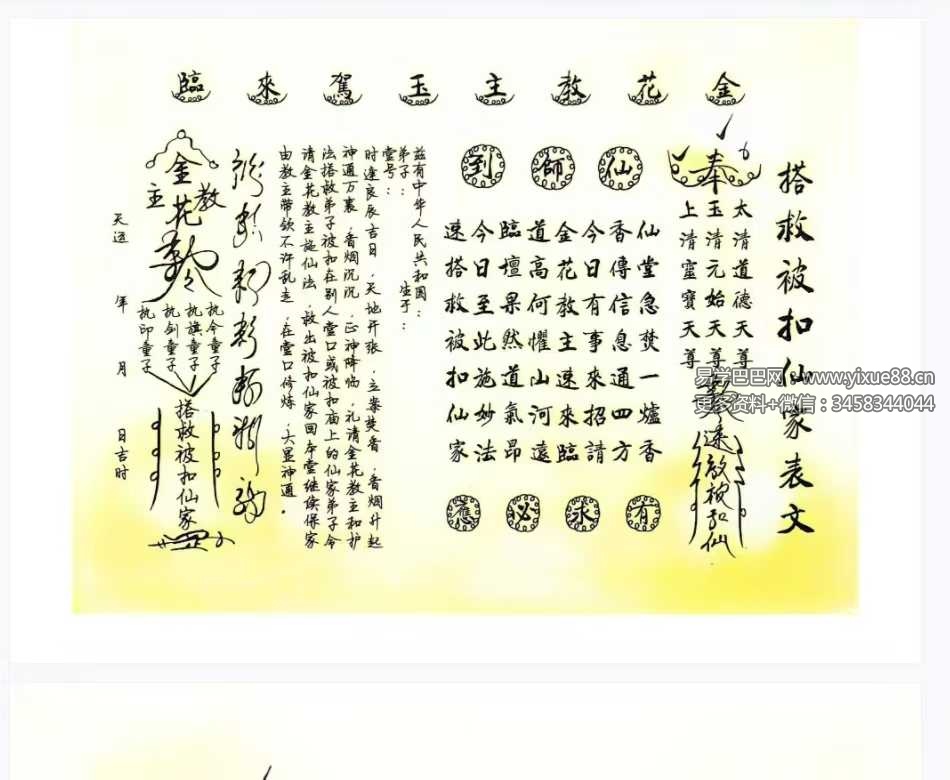 金花教主玉駕來臨
搭救被扣仙家表文
奉
太清道德天尊
玉清元始天尊
上清靈寶天尊
速救被扣仙
仙師到
仙堂急焚一爐香
香傳信息通四方
今日有事來招請
金花教主速來臨
道高何懼山河遠
臨壇果然道氣昂
今日至此施妙法
速搭救被扣仙家
有求必應
兹有中华人民共和国：
生于：
弟子：
堂号：
时逢良辰吉日，天地开张，立案焚香，香烟升起
神通万裏，香烟沉沉，正神降临，礼请金花教主和护
法搭救弟子被扣在别人堂口或被扣庙上的仙家弟子今
请金花教主施仙法，救出被扣仙家回本堂继续保家
由教主带领不许乱走，在堂口修炼，大显神通。
金花教主
执令童子
执旗童子
执剑童子
执印童子
搭救被扣仙家
天运 年 月 日吉时
易学巴巴网：www.yixue88.cn
更多资料+微信：3458344044